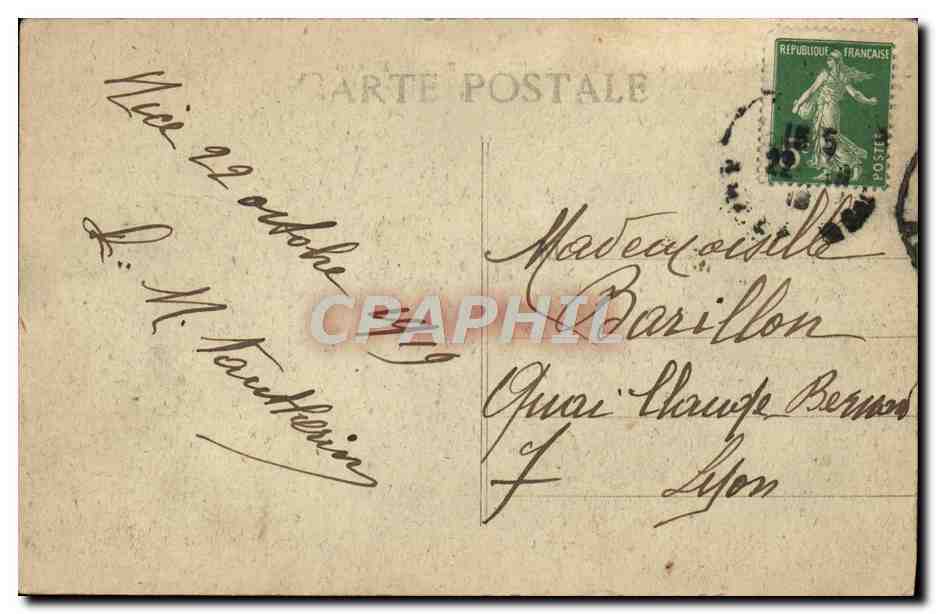 CARTE POSTALE
RÉPUBLIQUE FRANÇAISE
POSTES
Nice 22 octobre 1919
L.. M. Vautherin
Mademoiselle
Barillon
Quai Claude Bernard
7
Lyon
CPAPHIL